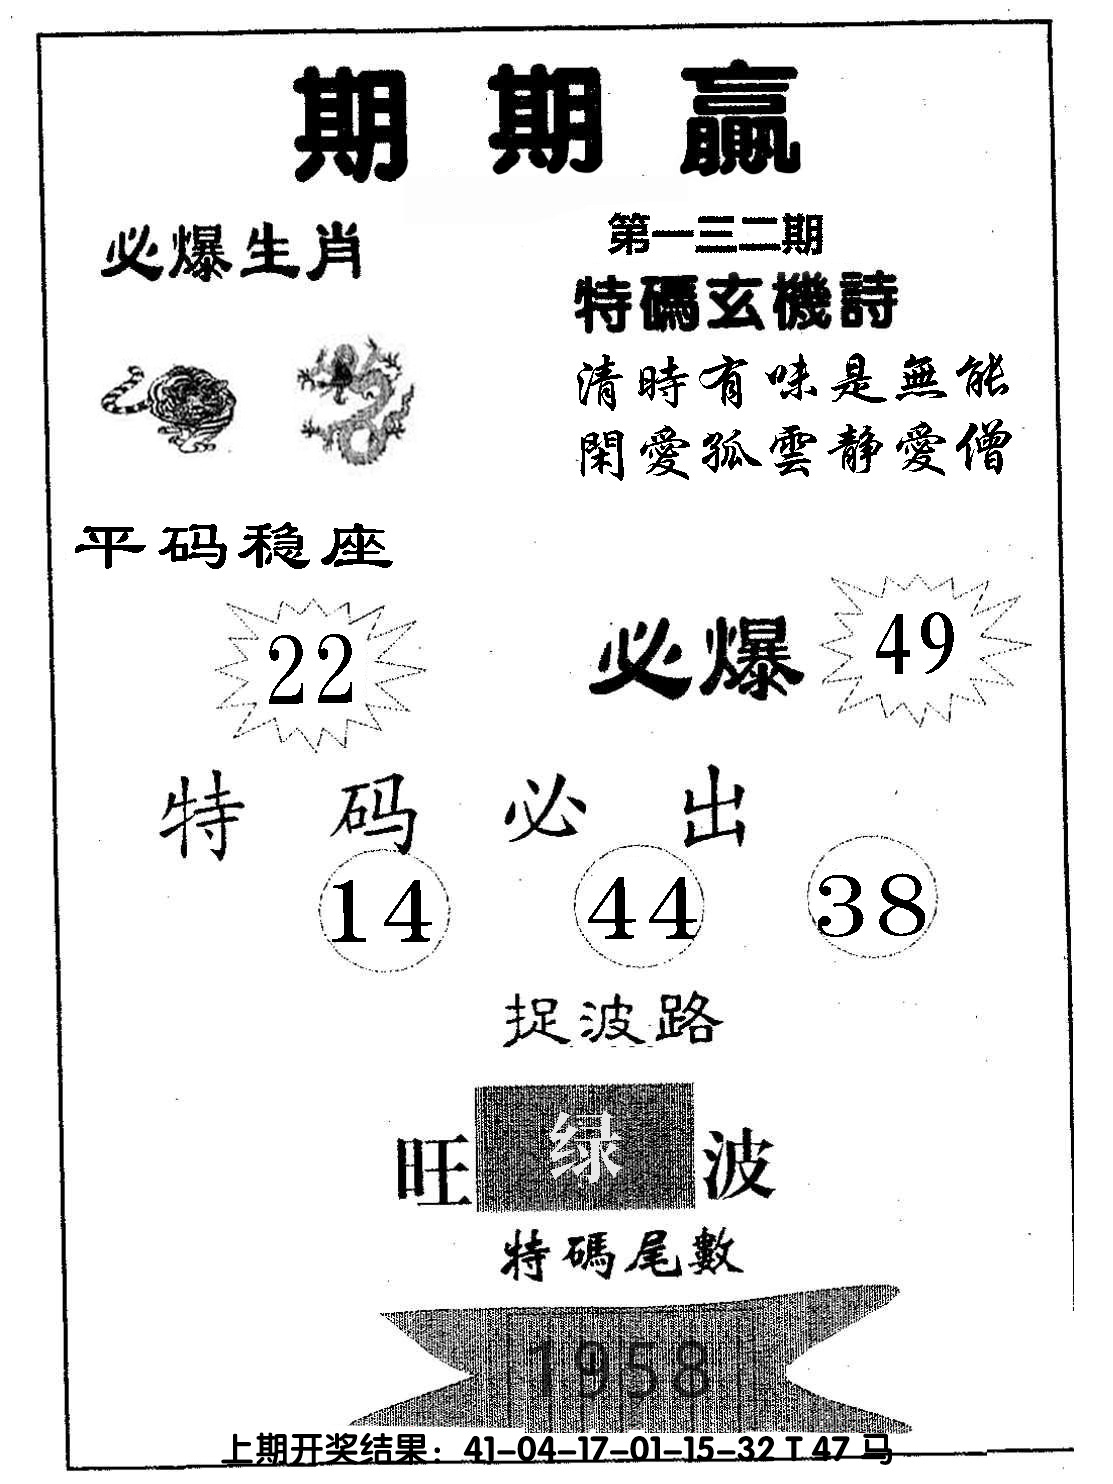 期期赢
必爆生肖
第一三二期
特碼玄機詩
清時有味是無能
閑愛孤雲静愛僧
平码稳座
22
必爆 49
特码必出
14 44 38
捉波路
旺绿波
特碼尾數
1958
上期开奖结果：41-04-17-01-15-32 T 47 马